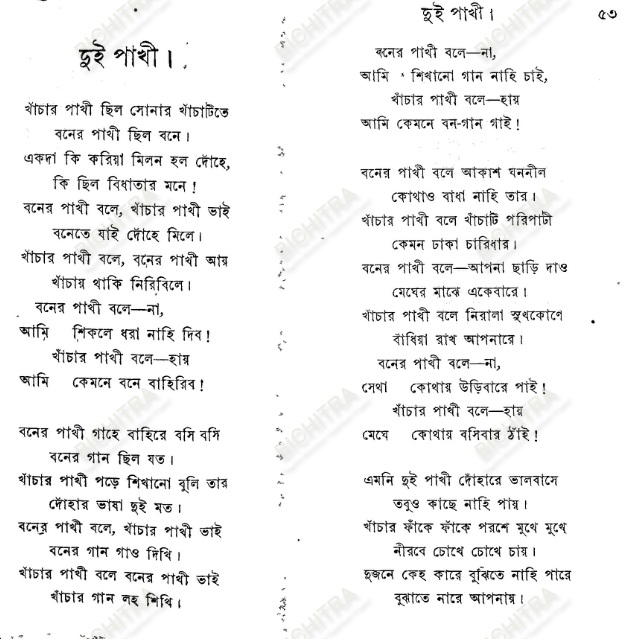 দুই পাখী।
খাঁচার পাখী ছিল সোনার খাঁচাটিতে
বনের পাখী ছিল বনে।
একদা কি করিয়া মিলন হল দোঁহে,
কি ছিল বিধাতার মনে!
বনের পাখী বলে, খাঁচার পাখী ভাই
বনেতে যাই দোঁহে মিলে।
খাঁচার পাখী বলে, বনের পাখী আয়
খাঁচায় থাকি নিরিবিলে।
বনের পাখী বলে—না,
আমি শিকলে ধরা নাহি দিব!
খাঁচার পাখী বলে—হায়
আমি কেমনে বনে বাহিরিব!
বনের পাখী গাহে বাহিরে বসি বসি
বনের গান ছিল যত।
খাঁচার পাখী পড়ে শিখানো বুলি তার
দোঁহার ভাষা দুই মত।
বনের পাখী বলে, খাঁচার পাখী ভাই
বনের গান গাও দিখি।
খাঁচার পাখী বলে বনের পাখী ভাই
খাঁচার গান লহ শিখি।
দুই পাখী। ৫৩
বনের পাখী বলে—না,
আমি শিখানো গান নাহি চাই,
খাঁচার পাখী বলে—হায়
আমি কেমনে বন-গান গাই!
বনের পাখী বলে আকাশ ঘননীল
কোথাও বাধা নাহি তার।
খাঁচার পাখী বলে খাঁচাটি পরিপাটী
কেমন ঢাকা চারিধার।
বনের পাখী বলে—আপনা ছাড়ি দাও
মেঘের মাঝে একেবারে।
খাঁচার পাখী বলে নিরালা সুখকোণে
বাঁধিয়া রাখ আপনারে।
বনের পাখী বলে—না,
সেথা কোথায় উড়িবারে পাই!
খাঁচার পাখী বলে—হায়
মেঘে কোথায় বসিবার ঠাঁই!
এমনি দুই পাখী দোঁহারে ভালবাসে
তবুও কাছে নাহি পায়।
খাঁচার ফাঁকে ফাঁকে পরশে মুখে মুখে
নীরবে চোখে চোখে চায়।
দুজনে কেহ কারে বুঝিতে নাহি পারে
বুঝাতে নারে আপনায়।
BICHITRA